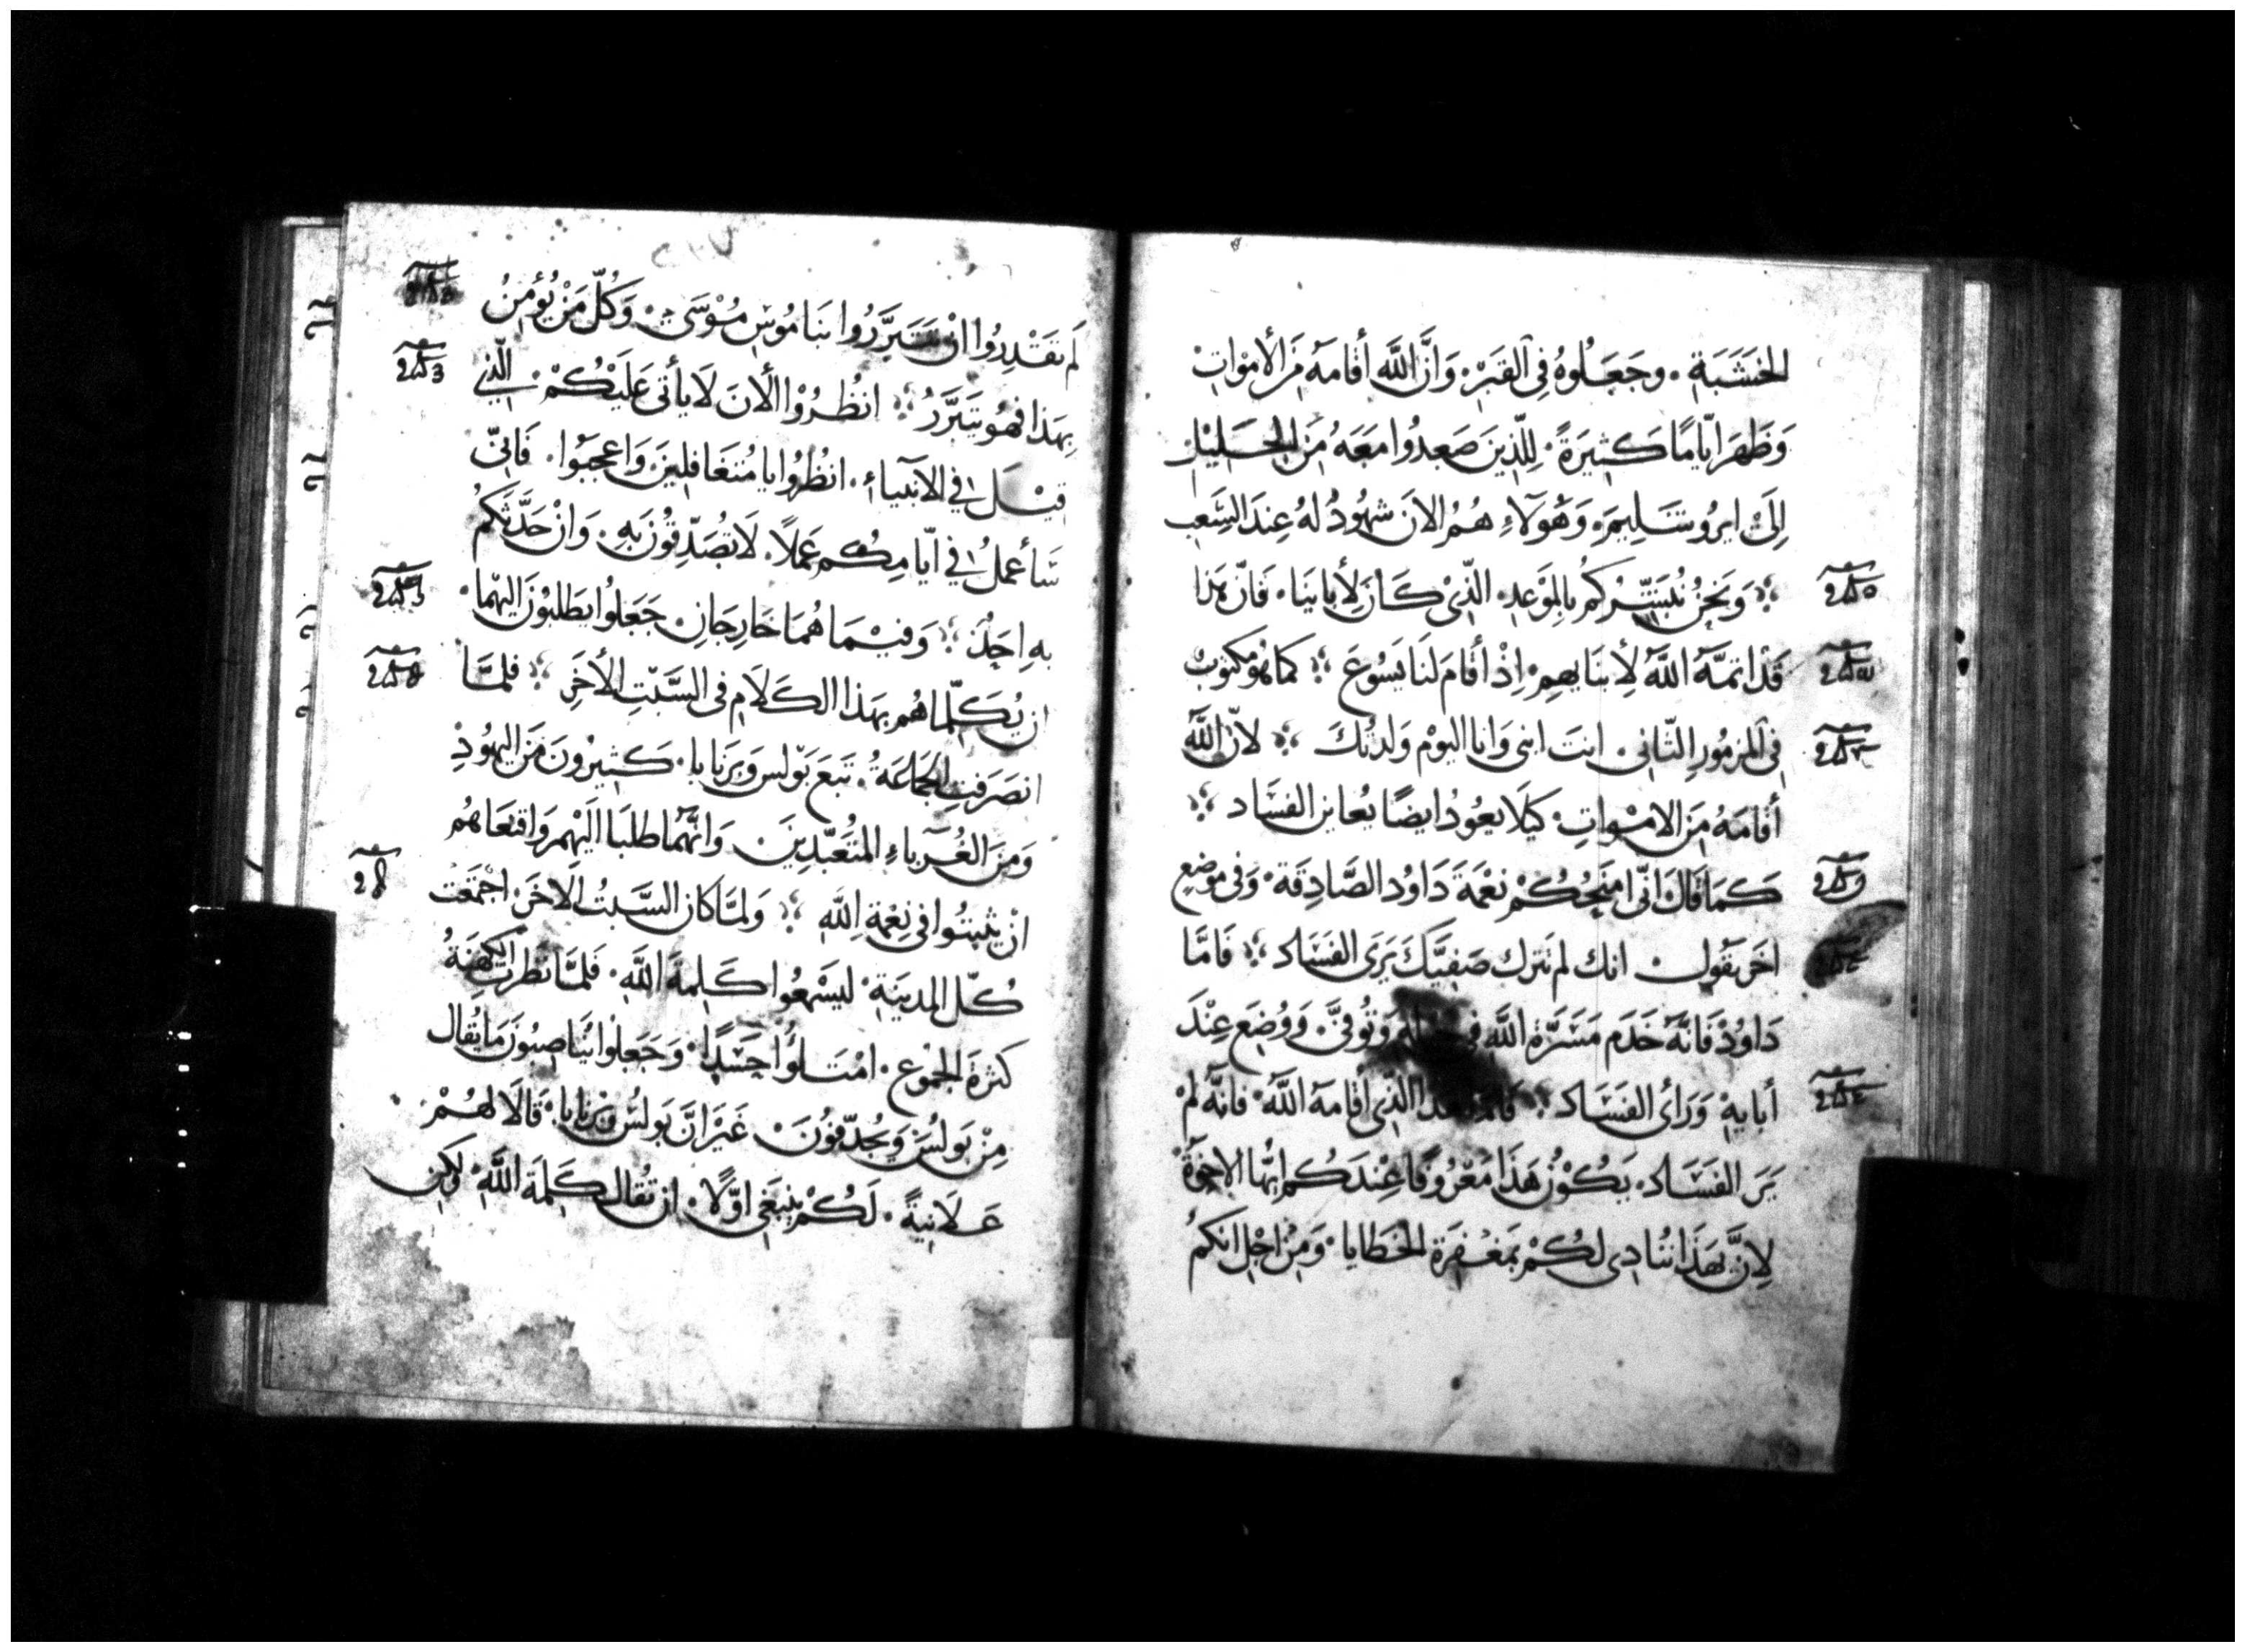 الخَشَبَةِ. وجَعَلُوهُ فِي القَبْرِ. وَانَّ اللَّه أقَامَهُ مِنَ الأمْوَاتِ
وَظَهَرَ ايّامًا كَثِيرَةً. لِلّذِينَ صَعِدُوا مَعَهُ مِنَ الجَلِيْلِ
اِلَىْ ايرُوشَلِيمَ. وَهَؤلاءِ هُمُ الانَ شُهُودُ لهُ عِندَ الشَعِب
وَنَحْنُ نُبَشِّرُكُم بِالمَوْعِدِ. الّذِيْ كَانَ لِأبَائِنَا. فَانّ هَذَا
قَدْ اتمَّهُ اللَّهُ لِأبنَايهِمِ. اِذْ أقَامَ لَنَا يَسُوعَ كمَا هُو مَكتوبُ
فِي المزمُورِ الثّانِى. انتَ ابنى وَانا اليَوْم وَلدتكَ لأنّ اللَّهَ
أقَامَهُ مِنَ الامْوَاتِ. كَيلَا يعُودُ ايضًا يُعاينِ الفسَاد
كَمَا قَالَ انّى امنَحُكُمْ نِعْمَةَ دَاوُد الصَّادِقَة. وَفى مَوْضِعٍ
اخَر يَقُول. انك لم تترك صَفِيَّكَ يَرَى الفسَاد فَامَّا
دَاوُدْ فَانّهُ خَدَم مَسَرَّةَ اللَّهِ فى وَتُوفىَّ. وَوُضِعَ عِنْدَ
أبايهْ وَرَأى الفسَاد الّذِى أقَامَهُ اللَّهُ. فَانّهُ لمْ
يَرَ الفسَاد. يَكُوْن هَذَا مَعْرُوفًا عِنْدَكُم ايّهَا الاِخوَةُ
لِانّ بَهَذَا نُنادِى لكُمْ بمَغْفِرَة الخَطَايا. وَمِنْ اجْلِ انكُمُ
لَم تَقْدِرُوا انْ تَتَبرَّرُوا بنَامُوسِ مُوْسَى. وَكُلّ مَنْ يُؤمِنُ
بِهَذا فهُو يَتَبرَّرُ انظُرُوْا الأنَ لَا يأتى عَلَيْكُمْ الّذِي
قيْلَ فِى الأنبيَاءِ. انظُرُوا يا مُتغَافِلِينَ وَاعجَبُوا. فَانىّ
سَأعملُ فِى ايّامِكُم عَمَلاً. لَا تُصَدِّقُوْنَ بهِ. وَانْ حَدَّثَكُم
بهِ اِحَدُ وَفيْمَا هُمَا خَارِجَانِ جَعَلُوا يَطلبُوْنَ اليهِمَا.
ان يُكَلّمَاهُم بِهَذا الكَلَامِ فى السَّبْتِ الأخَرِ فلمَّا
انصَرَفَتِ الجَمَاعَةُ. تَبعَ بَوْلس وَبَرنابا. كَثِيرُونَ مِنَ اليهُودِ
وَمِنَ الغُرَباءِ المُتَعَبّدِينَ وَانَّهُمَا طلبَا اليْهِم وَاقنَعَاهُم
انْ يثبتُوا فى نِعْمَة اللَّهِ وَلمّا كان السَّبتُ الأخَرَ اجْتَمَعَتْ
كُلّ المدِينَةِ. ليَسْمَعُوا كَلِمَةَ اللَّهِ. فَلمَّا نَظرَتِ الكَهَنةُ
كثرَة الجمُوعِ. امْتَلُؤا حَسَدًا. وَجَعَلُوا يُنَاصِبُونَ مَا يُقالُ
مِنْ بَولسُ وَيُجَدّفُونَ. غَيْرَ انَّ بَولسُ وَبَرنَابا. قَالَا لهُمْ
عَلَانِيَةً. لَكُمْ ينبَغِى اوّلًا. انْ تُقَال كَلِمَةَ اللَّهِ. وَلكِن